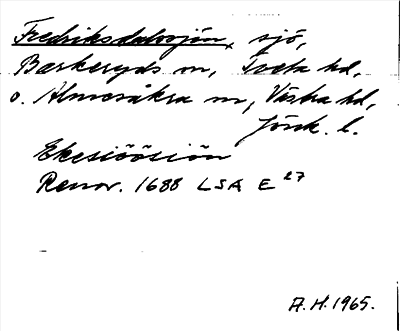 Fredriksdalssjön, sjö,
Barkeryds sn, Tveta hd,
o. Almesåkra sn, Västra hd,
Jönk. l.
Ekesiöösiön
Renov. 1688 LSA E 27
A.H. 1965.